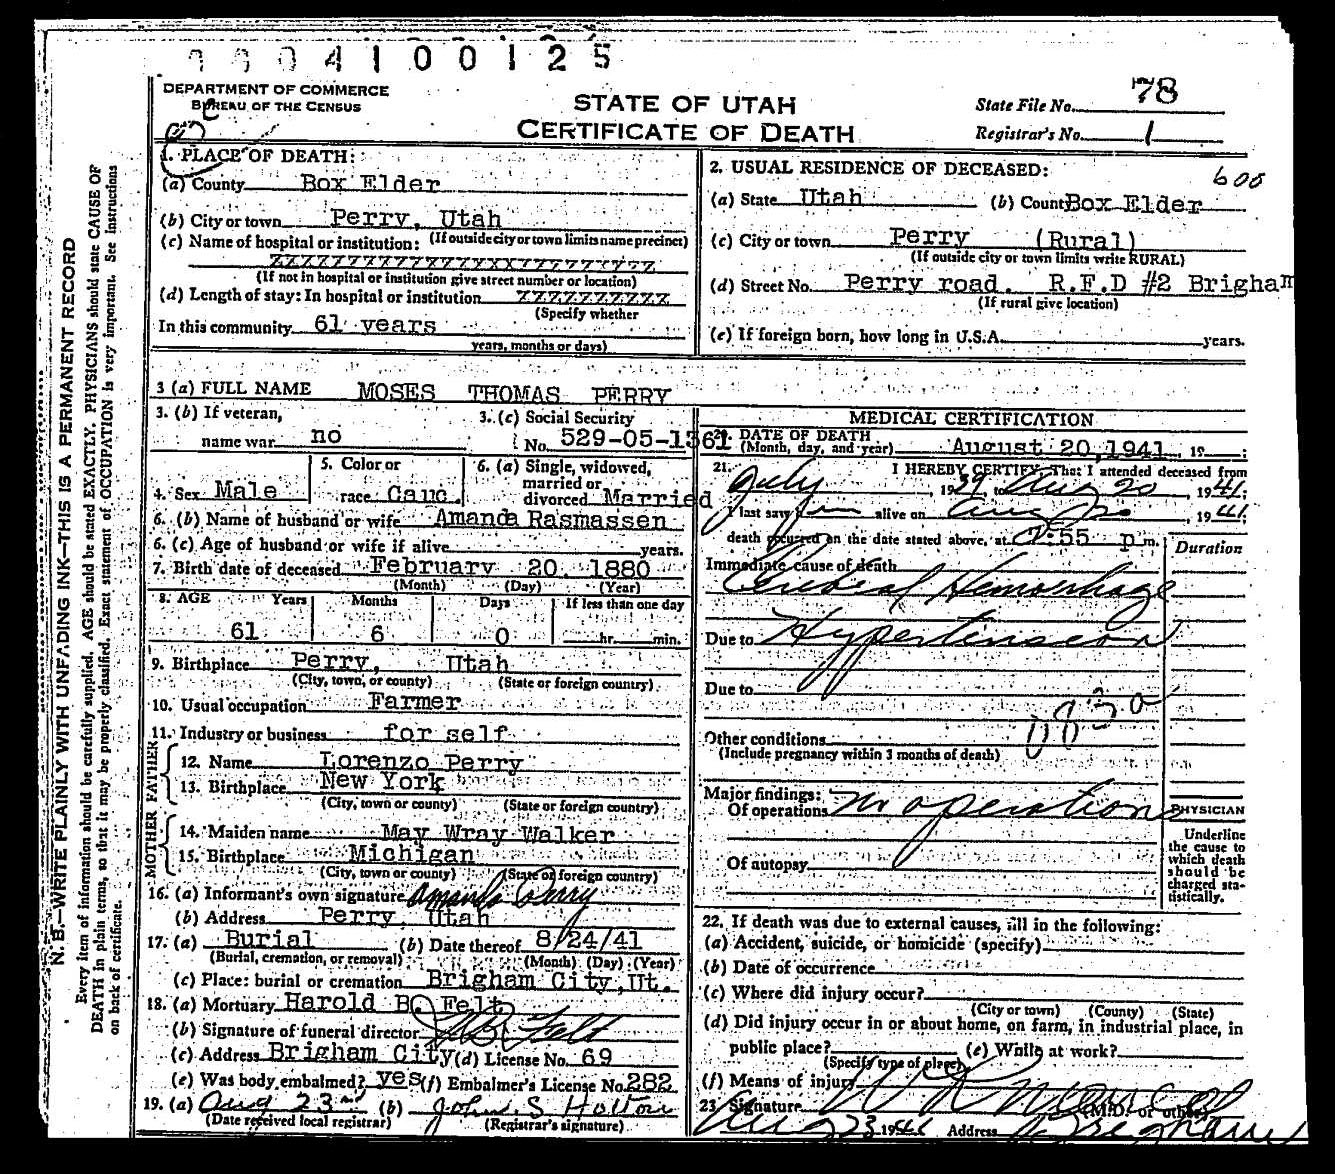 9904100125
DEPARTMENT OF COMMERCE
BUREAU OF THE CENSUS
STATE OF UTAH
CERTIFICATE OF DEATH
State File No. 78
Registrar's No. 1
1. PLACE OF DEATH:
(a) County Box Elder
(b) City or town Perry, Utah
(If outside city or town limits name precinct)
(c) Name of hospital or institution:
(If not in hospital or institution give street number or location)
(d) Length of stay: In hospital or institution ZZZZZZZZZZ
(Specify whether
In this community 61 years
years, months or days)
2. USUAL RESIDENCE OF DECEASED:
600
(a) State Utah (b) County Box Elder
(c) City or town Perry (Rural)
(If outside city or town limits write RURAL)
(d) Street No. Perry road. R.F.D #2 Brigham
(If rural give location)
(e) If foreign born, how long in U.S.A. years.
3 (a) FULL NAME MOSES THOMAS PERRY
3. (b) If veteran,
name war no
3. (c) Social Security
No. 529-05-1361
4. Sex Male
5. Color or
race Cauc.
6. (a) Single, widowed,
married or
divorced Married
6. (b) Name of husband or wife Amanda Rasmassen
6. (c) Age of husband or wife if alive years.
7. Birth date of deceased February 20 1880
(Month) (Day) (Year)
8. AGE Years Months Days If less than one day
61 6 0 hr. min.
9. Birthplace Perry, Utah
(City, town, or county) (State or foreign country)
10. Usual occupation Farmer
11. Industry or business for self
FATHER
12. Name Lorenzo Perry
13. Birthplace New York
(City, town or county) (State or foreign country)
MOTHER
14. Maiden name May Wray Walker
15. Birthplace Michigan
(City, town or county) (State or foreign country)
16. (a) Informant's own signature Amanda Perry
(b) Address Perry, Utah
17. (a) Burial (b) Date thereof 8/24/41
(Burial, cremation, or removal) (Month) (Day) (Year)
(c) Place: burial or cremation Brigham City, Ut.
18. (a) Mortuary Harold B. Felt
(b) Signature of funeral director H B Felt
(c) Address Brigham City (d) License No. 69
(e) Was body embalmed? yes (f) Embalmer's License No. 282
19. (a) Aug 23rd (b) John S Holton
(Date received local registrar) (Registrar's signature)
MEDICAL CERTIFICATION
20. DATE OF DEATH
(Month, day, and year) August 20, 1941, 19
21. I HEREBY CERTIFY, That I attended deceased from
July, 1939, to Aug 20, 1941;
I last saw him alive on Aug 20, 1941;
death occurred on the date stated above, at :55 p m.
Duration
Immediate cause of death
Cerebral Hemorrhage
Due to Hypertension
Due to
Other conditions
(Include pregnancy within 3 months of death)
Major findings:
Of operations no operation
Of autopsy
PHYSICIAN
Underline
the cause to
which death
should be
charged sta-
tistically.
22. If death was due to external causes, fill in the following:
(a) Accident, suicide, or homicide (specify)
(b) Date of occurrence
(c) Where did injury occur?
(City or town) (County) (State)
(d) Did injury occur in or about home, on farm, in industrial place, in
public place? (e) While at work?
(Specify type of place)
(f) Means of injury
23. Signature (M.D. or other)
Aug 23 1941 Address Brigham
N. B.—WRITE PLAINLY WITH UNFADING INK—THIS IS A PERMANENT RECORD
Every item of information should be carefully supplied. AGE should be stated EXACTLY. PHYSICIANS should state CAUSE OF
DEATH in plain terms, so that it may be properly classified. Exact statement of OCCUPATION is very important. See instructions
on back of certificate.